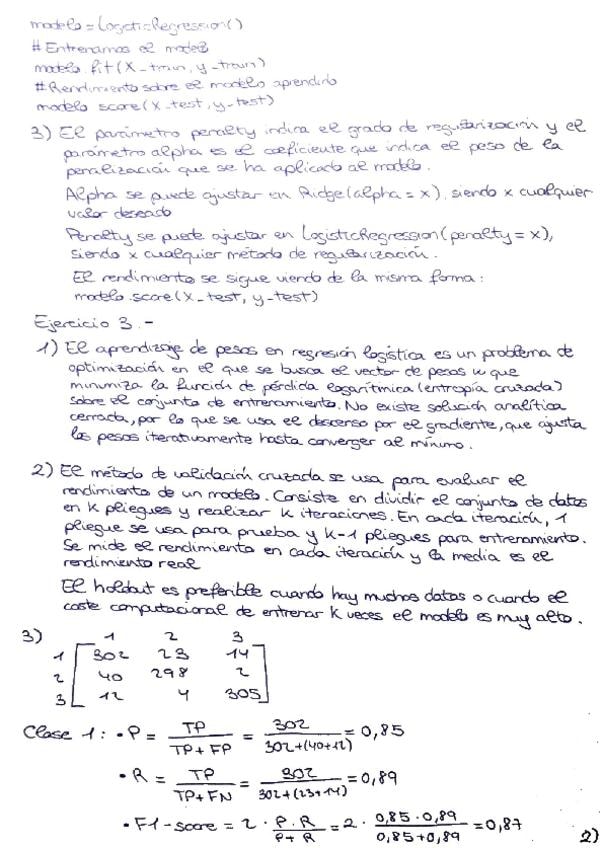 modelo = LogisticRegression()
# Entrenamos el modelo
modelo.fit(X_train, y_train)
# Rendimiento sobre el modelo aprendido
modelo score(X_test, y_test)
3) El parámetro penalty indica el grado de regularización y el
parámetro alpha es el coeficiente que indica el peso de la
penalización que se ha aplicado al modelo.
Alpha se puede ajustar en Ridge(alpha = x), siendo x cualquier
valor deseado
Penalty se puede ajustar en LogisticRegression(penalty = x),
siendo x cualquier método de regularización.
El rendimiento se sigue viendo de la misma forma:
modelo.score(X_test, y_test)
Ejercicio 3.-
1) El aprendizaje de pesos en regresión logística es un problema de
optimización en el que se busca el vector de pesos w que
minimiza la función de pérdida logarítmica (entropía cruzada)
sobre el conjunto de entrenamiento. No existe solución analítica
cerrada, por lo que se usa el descenso por el gradiente, que ajusta
los pesos iterativamente hasta converger al mínimo.
2) El método de validación cruzada se usa para evaluar el
rendimiento de un modelo. Consiste en dividir el conjunto de datos
en K pliegues y realizar K iteraciones. En cada iteración, 1
pliegue se usa para prueba y K-1 pliegues para entrenamiento.
Se mide el rendimiento en cada iteración y la media es el
rendimiento real
El holdout es preferible cuando hay muchos datos o cuando el
coste computacional de entrenar K veces el modelo es muy alto.
3) 1 2 3
1 [302 23 14]
2 [40 298 2]
3 [12 4 305]
Clase 1: • P = TP / (TP + FP) = 302 / (302+(40+12)) = 0,85
• R = TP / (TP + FN) = 302 / (302+(23+14)) = 0,89
• F1-score = 2 · (P · R) / (P + R) = 2 · (0,85 · 0,89) / (0,85+0,89) = 0,87
2)